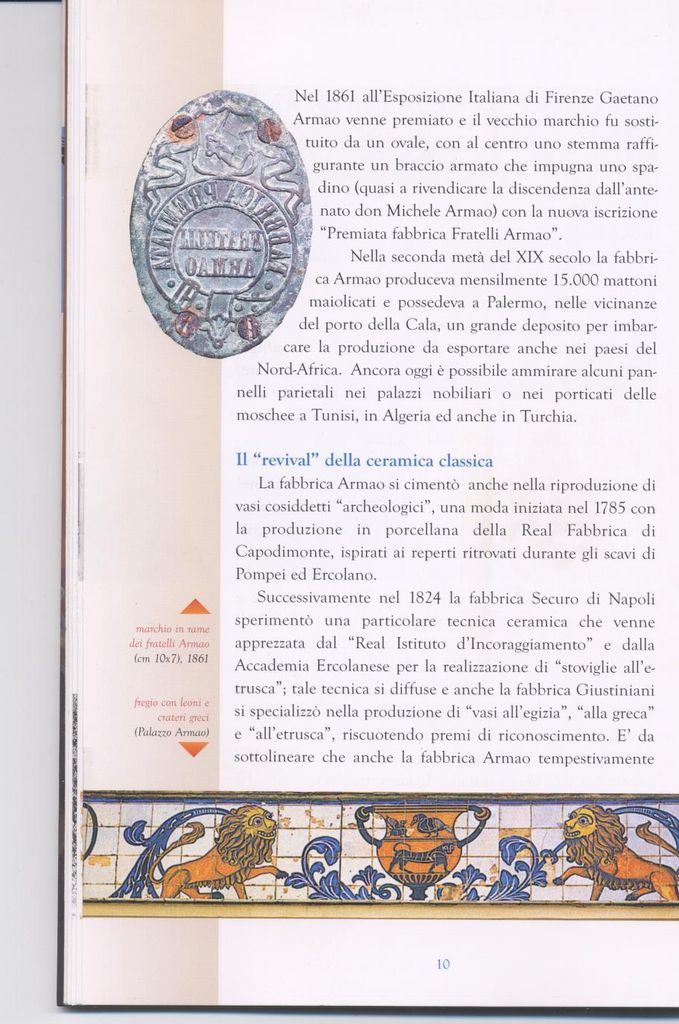 Nel 1861 all'Esposizione Italiana di Firenze Gaetano
Armao venne premiato e il vecchio marchio fu sosti-
tuito da un ovale, con al centro uno stemma raffi-
gurante un braccio armato che impugna uno spa-
dino (quasi a rivendicare la discendenza dall'ante-
nato don Michele Armao) con la nuova iscrizione
"Premiata fabbrica Fratelli Armao".
Nella seconda metà del XIX secolo la fabbri-
ca Armao produceva mensilmente 15.000 mattoni
maiolicati e possedeva a Palermo, nelle vicinanze
del porto della Cala, un grande deposito per imbar-
care la produzione da esportare anche nei paesi del
Nord-Africa. Ancora oggi è possibile ammirare alcuni pan-
nelli parietali nei palazzi nobiliari o nei porticati delle
moschee a Tunisi, in Algeria ed anche in Turchia.
FABBRICA PREMIATA
FRATELLI
ARMAO
Il "revival" della ceramica classica
La fabbrica Armao si cimentò anche nella riproduzione di
vasi cosiddetti "archeologici", una moda iniziata nel 1785 con
la produzione in porcellana della Real Fabbrica di
Capodimonte, ispirati ai reperti ritrovati durante gli scavi di
Pompei ed Ercolano.
Successivamente nel 1824 la fabbrica Securo di Napoli
sperimentò una particolare tecnica ceramica che venne
apprezzata dal "Real Istituto d'Incoraggiamento" e dalla
Accademia Ercolanese per la realizzazione di "stoviglie all'e-
trusca"; tale tecnica si diffuse e anche la fabbrica Giustiniani
si specializzò nella produzione di "vasi all'egizia", "alla greca"
e "all'etrusca", riscuotendo premi di riconoscimento. E' da
sottolineare che anche la fabbrica Armao tempestivamente
marchio in rame
dei fratelli Armao
(cm 10x7), 1861
fregio con leoni e
crateri greci
(Palazzo Armao)
10